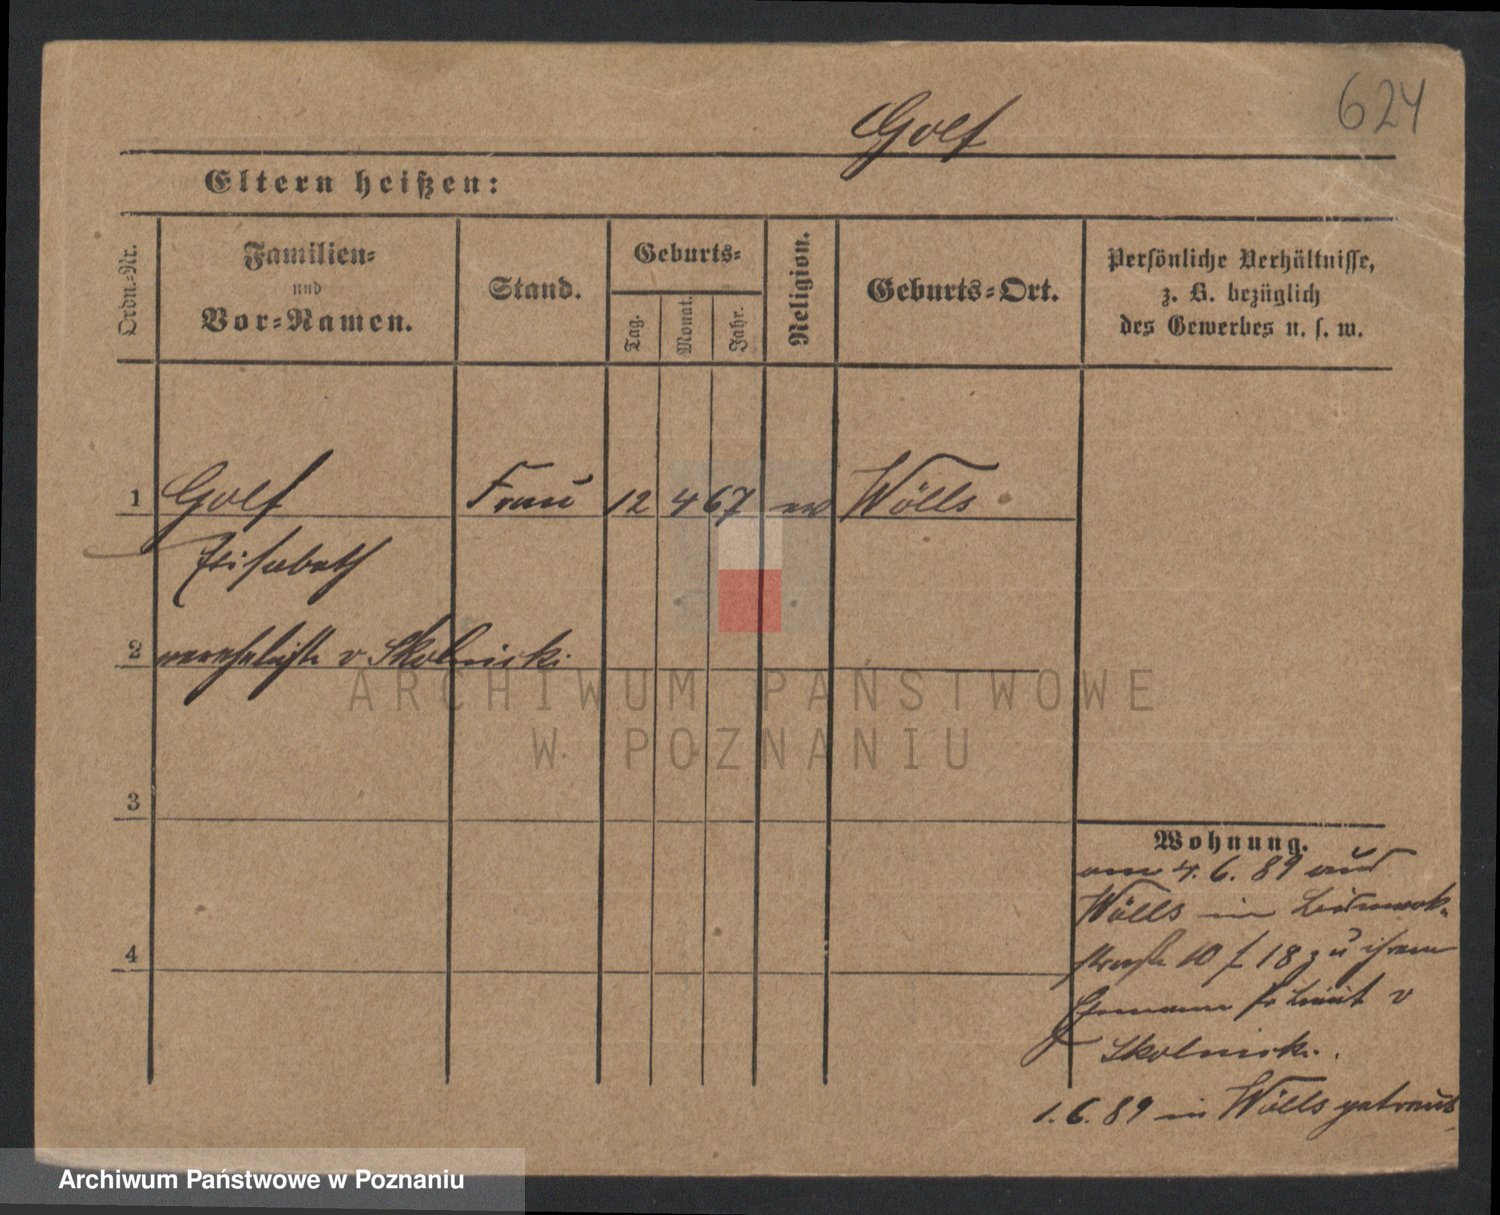 624
Golf
Eltern heißen:
Ordn.-Nr.
Familien-
und
Vor-Namen.
Stand.
Geburts-
Tag.
Monat.
Jahr.
Religion.
Geburts-Ort.
Persönliche Verhältnisse,
z. B. bezüglich
des Gewerbes u. s. w.
1 Golf Frau 12 4 67 ev Wölls
Elisabeth
2 verehelichte v Skolnicki
ARCHIWUM PAŃSTWOWE
W POZNANIU
3
4
Wohnung.
am 4. 6. 89 aus
Wölls in Bismark-
straße 10 f 18 zu ihrem
Ehemann v
Skolnicki.
1. 6. 89 in Wölls getraut
Archiwum Państwowe w Poznaniu